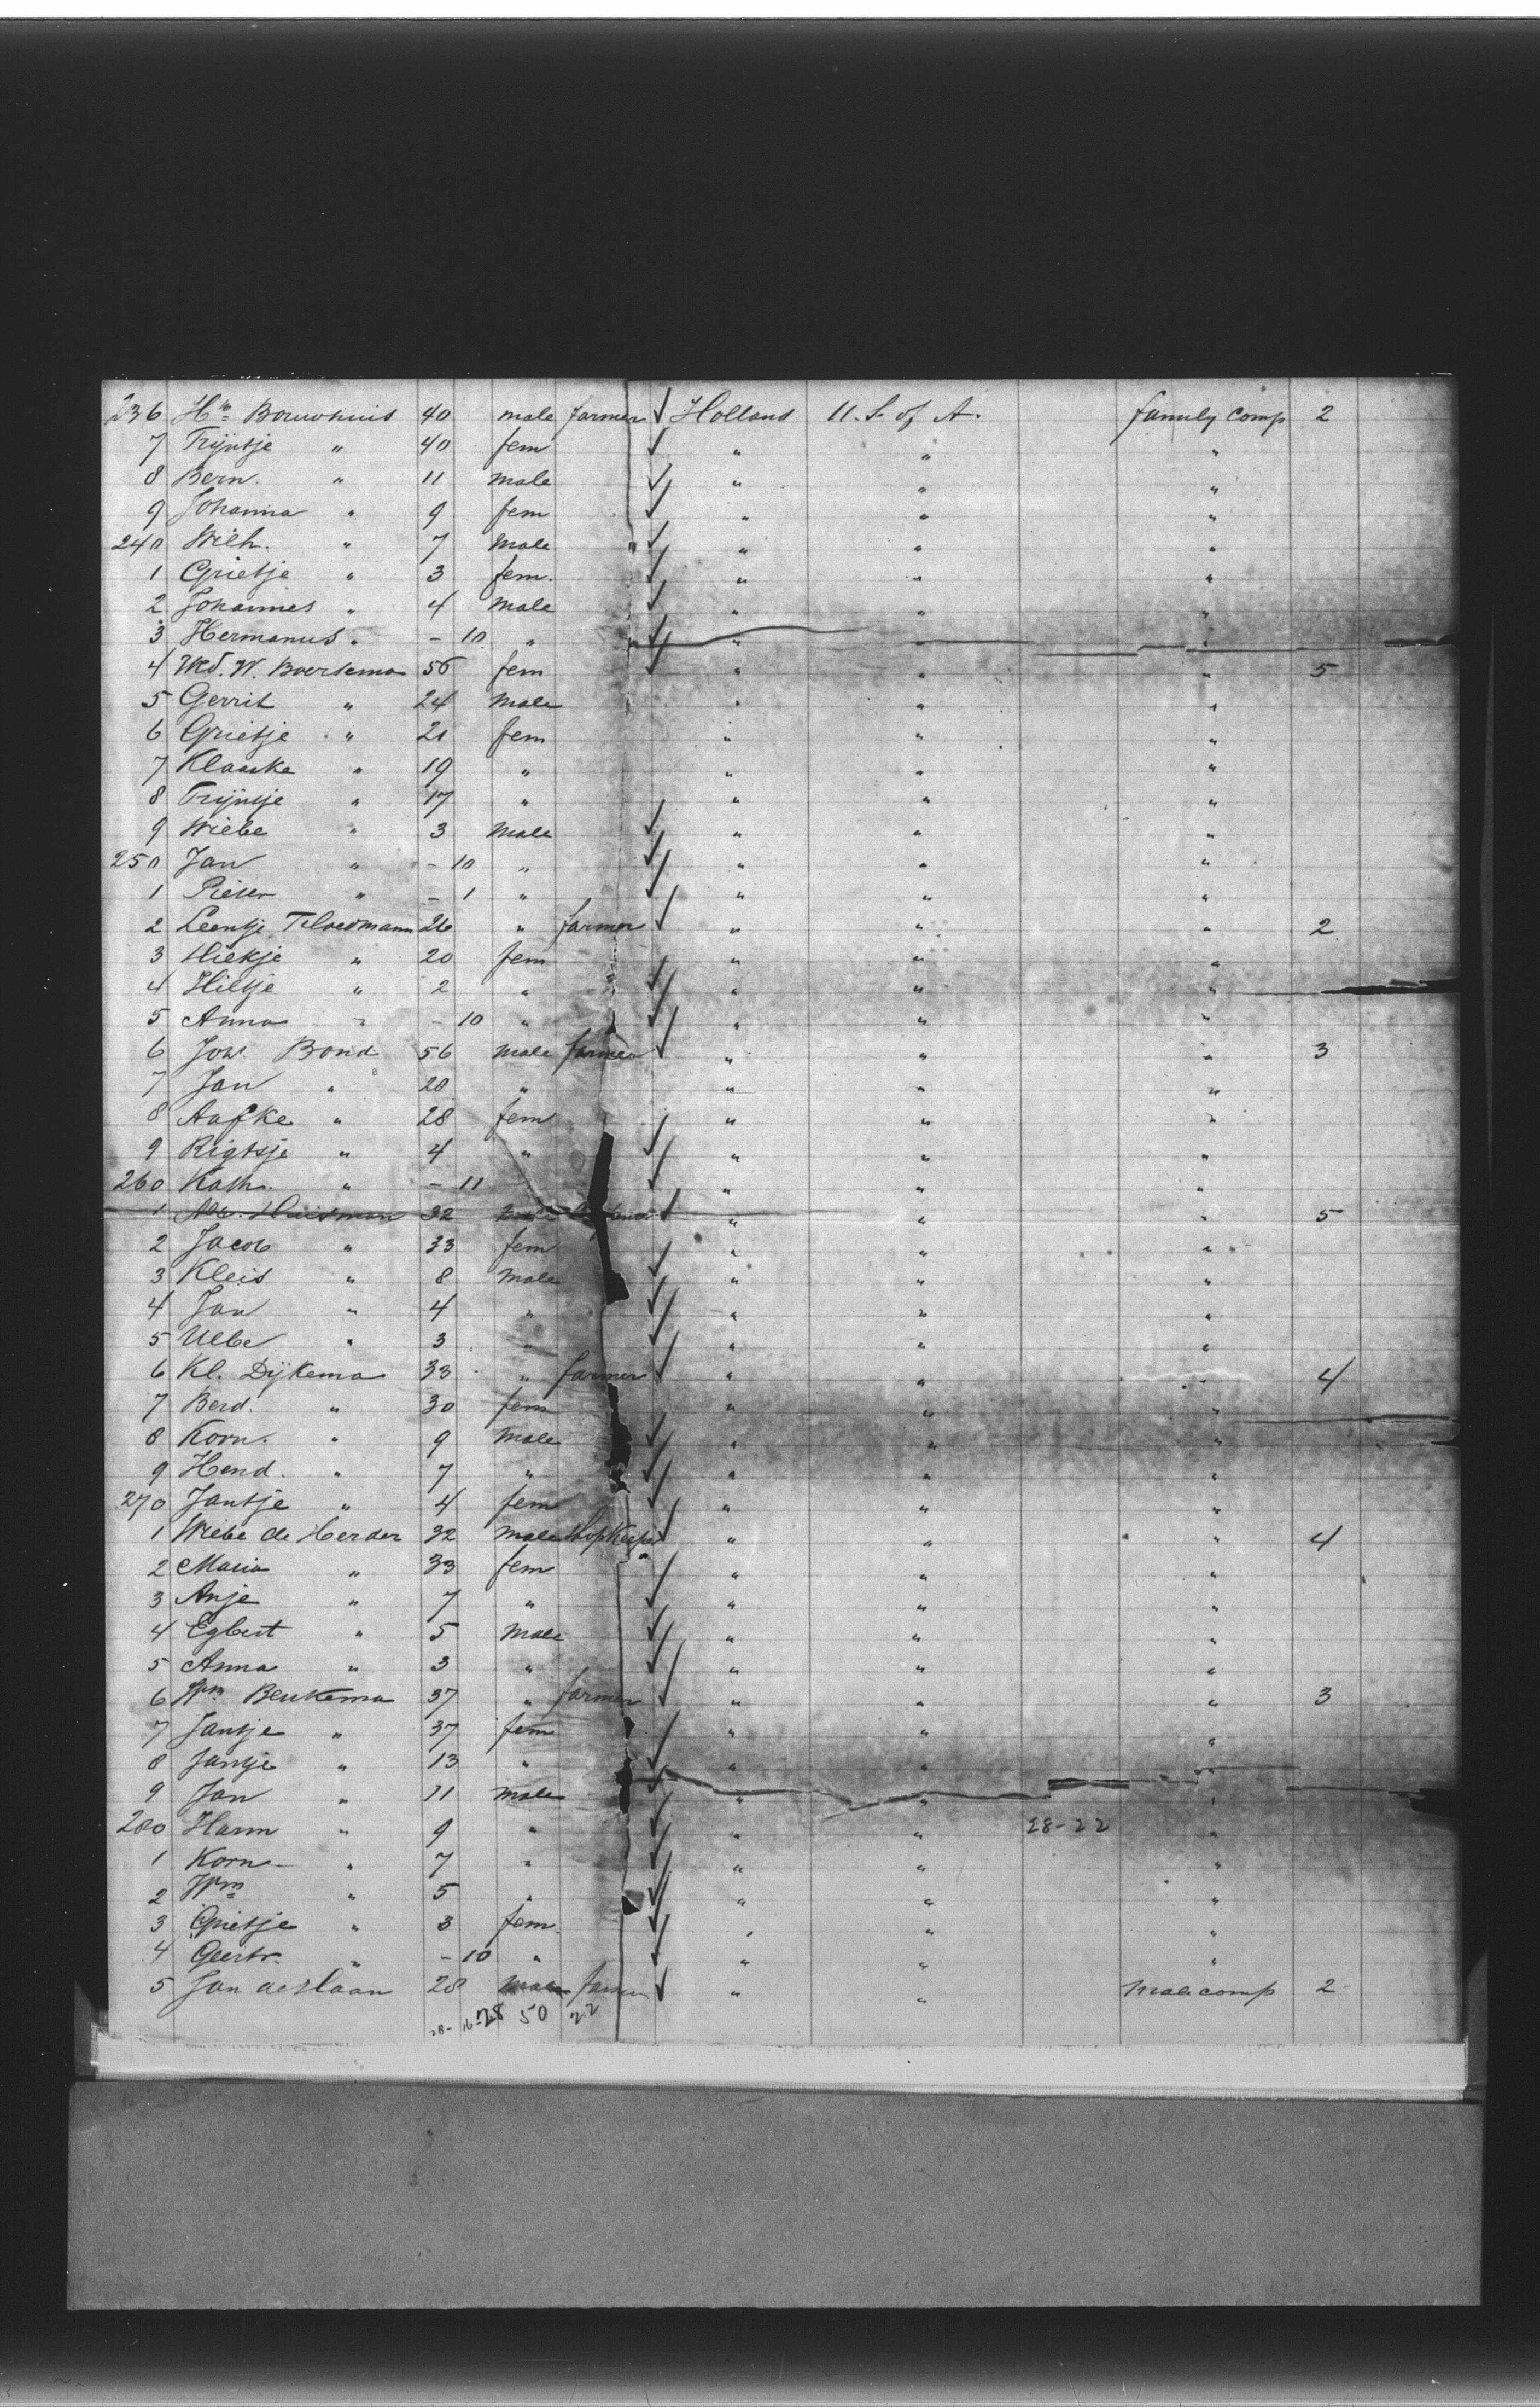 236 Hk Bouwhuis 40 male farmer ✓ Holland U. S. of A. family comp 2
7 Trijntje " 40 fem ✓ " " "
8 Bern. " 11 male ✓ " " "
9 Johanna " 9 fem ✓ " " "
240 Wilh. " 7 male " ✓ " " "
1 Grietje " 3 fem. ✓ " " "
2 Johannes " 4 male ✓ " " "
3 Hermanus " - 10 " ✓ " " "
4 Wd. W. Boersema 56 fem ✓ " " " 5
5 Gerrit " 24 male " " "
6 Grietje " 21 fem " " "
7 Klaaske " 19 " " " "
8 Trijntje " 17 " " " "
9 Wiebe " 3 male ✓ " " "
250 Jan " - 10 " ✓ " " "
1 Pieter " - 1 " ✓ " " "
2 Leentje 26 " farmer ✓ " " " 2
3 Hiekje " 20 fem " " "
4 Hiltje " 2 " ✓ " " "
5 Anna " - 10 " ✓ " " "
6 Bond 56 male farmer ✓ " " " 3
7 Jan " 28 " " " "
8 Aafke " 28 fem " " "
9 Rigtsje " 4 " ✓ " " "
260 Kath. " - 11 ✓ " " "
1 Huisman 32 male ✓ " " " 5
2 Jacob " 33 fem " " "
3 Kleis " 8 male ✓ " " "
4 Jan " 4 " ✓ " " "
5 Ulbe " 3 " ✓ " " "
6 Kl. Dijkema 33 " farmer ✓ " " " 4
7 Berd. " 30 fem " " "
8 Korn. " 9 male ✓ " " "
9 Hend. " 7 " ✓ " " "
270 Jantje " 4 fem ✓ " " "
1 Wiebe de Herder 32 male Shopkeeper ✓ " " " 4
2 Maria " 33 fem " " "
3 Anje " 7 " ✓ " " "
4 Egbert " 5 male ✓ " " "
5 Anna " 3 " ✓ " " "
6 Wm Beukema 37 " farmer ✓ " " " 3
7 Jantje " 37 fem " " "
8 Jantje " 13 " ✓ " " "
9 Jan " 11 male ✓ " " "
280 Harm " 9 " ✓ " " 28-22 "
1 Korn " 7 " ✓ " " "
2 Wm " 5 " ✓ " " "
3 Grietje " 3 fem. ✓ " " "
4 Geertr. " - 10 " ✓ " " "
5 Jan de Haan 28 male farmer ✓ " " male comp 2
28- 16-28 50 22